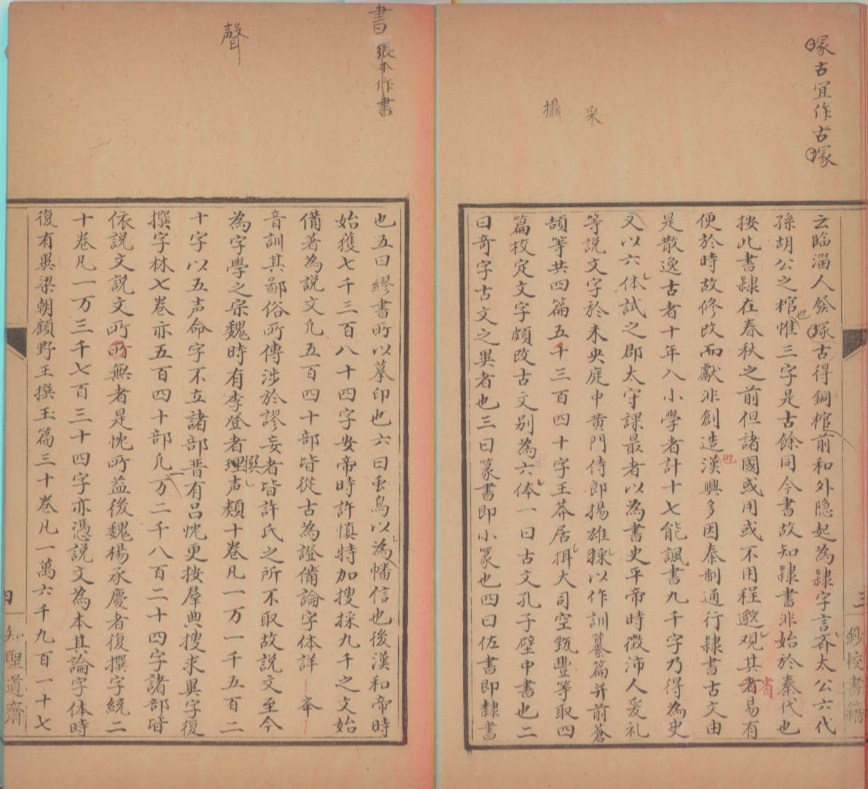 塚古宜作古塚
采
攝
云臨淄人發塚古得銅棺前和外隐起為隷字言齐太公六代
也
孫胡公之棺惟三字是古餘同今書故知隷書非始於秦代也
按此書隷在春秋之前但諸國或用或不用程邈观其者易有
省
便於時故修改而獻非創造漢興多因秦制通行隷書古文由
也
是散逸古者十年入小學者計十七能諷書九千字乃得為史
又以六体試之郡太守課最者以為書史平帝時徵沛人爰礼
等説文字於未央庭中黄門侍郎揚雄以作訓纂篇并前蒼
頡等共四篇五千三百四十字王莽居大司空甄豐等取四
篇校定文字頗改古文别為六体一曰古文孔子壁中書也二
曰奇字古文之異者也三曰篆書即小篆也四曰佐書即隸書
三
鈔校書籍
書 張本作書
聲
也五曰繆書所以摹印也六曰鳥以為幡信也後漢和帝時
始獲七千三百八十四字安帝時許慎特加搜採九千之文始
備著為說文凡五百四十部皆從古為證備論字体詳奉
音訓其鄙俗所傳涉於謬妄者皆許氏之所不取故說文至今
為字學之宗魏時有李登者理声類十卷凡一万一千五百二
撰
十字以五声命字不立諸部晋有吕忱更按羣典搜求異字復
撰字林七卷亦五百四十部凡一万二千八百二十四字諸部皆
依說文說文所所無者是忱所益後魏楊承慶者復撰字統二
十卷凡一万三千七百三十四字亦憑說文為本其論字体時
復有異梁朝顧野王撰玉篇三十卷凡一萬六千九百一十七
四
知聖道齋